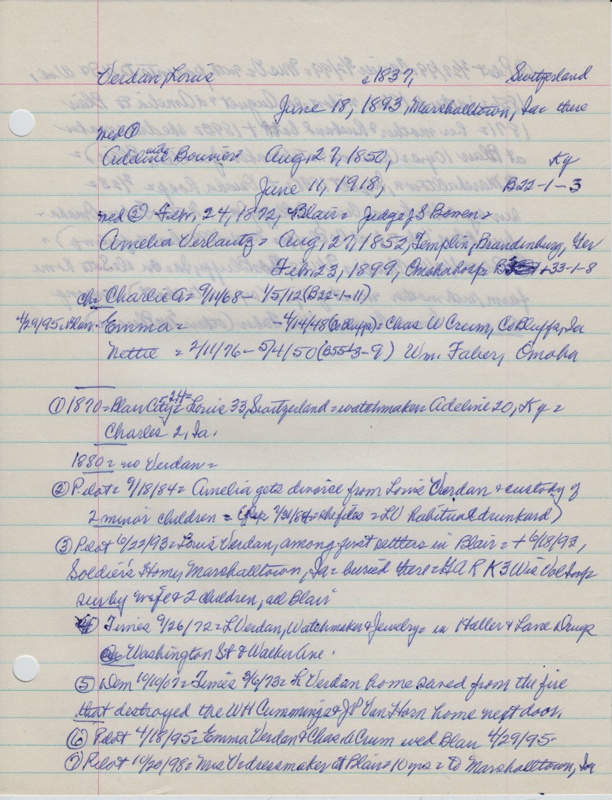 Verdan, Louis c1837, Switzerland
June 18, 1893, Marshalltown, Ia = there
med ①
Addline Bouvier Aug, 27, 1850, Ky
June 11, 1918, B22-1-3
med ② Feb, 24, 1872, Blair = Judge J S Bowen =
Amelia Verlautz = Aug, 27, 1852, Templin, Brandenburg, Ger
Feb. 23, 1899, Omaha hosp 33-1-8
ch = Charlie A = 9/11/68 - 1/5/12 (B22-1-11)
4/29/95, Blair - Emma = - 4/14/48 (Co Bluffs) = Chas W Crum, Co Bluffs, Ia
Nettie = 2/11/76 - 5/4/50 (B55-3-9) Wm. Faber, Omaha
① 1870 = Blair City = 24 = Louis 33, Switzerland = watchmaker Adeline 20, Ky =
Charles 2, Ia.
1880 = no Verdan =
② Pilot = 9/18/84 = Amelia gets divorce from Louis Verdan & custody of
2 minor children = 7/31/84 = she files = LV Habitual drunkard)
③ Pilot 6/22/93 = Louis Verdan, among first settlers in Blair = + 6/18/93,
Soldier's Home, Marshalltown, Ia = buried there = GAR K 3 Wis Vol Inf =
sur by wife & 2 children, all Blair
④ Times 9/26/72 = L Verdan, Watchmaker & Jewelry = in Haller & Lane Drugs
Washington St & Walker Ave.
⑤ Dem 10/10/07 = Times 3/6/73 = L Verdan home saved from the fire
that destroyed the WH Cummings & JP Van Horn home next door.
⑥ Pilot 4/18/95 = Emma Verdan & Chas Crum wed Blair 4/29/95
⑦ Pilot 10/20/98 = Mrs V dressmaker at Blair = 10 yrs = to Marshalltown, Ia